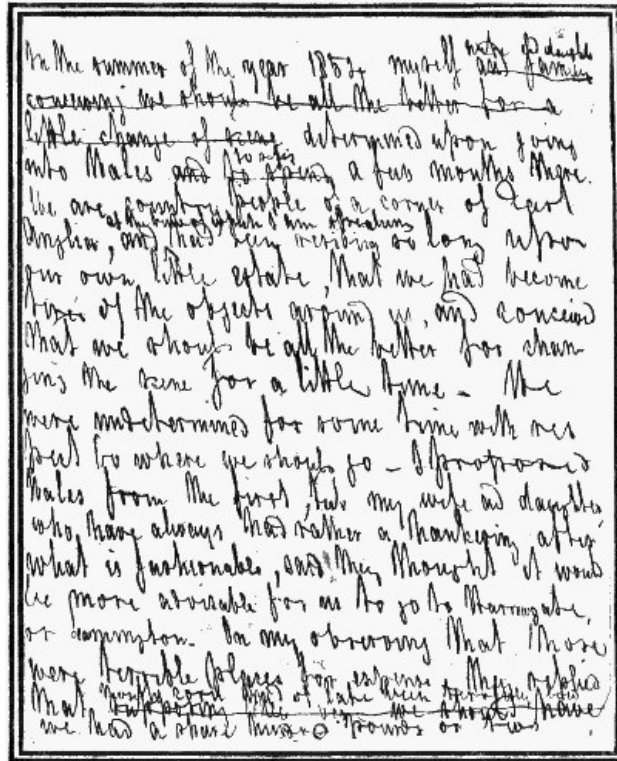 In the summer of the year 1854 myself wife and daughter and family
conceiving we should be all the better for a
little change of scene determined upon going
into Wales and to spend to pass a few months there.
We are country people of a corner of East
Anglia, and at the time of which I am speaking had been residing so long upon
our own little estate, that we had become
tired of the objects around us, and conceived
that we should be all the better for chan
ging the scene for a little time - We
were undetermined for some time with res
pect to where we should go - I proposed
Wales from the first, but my wife and daughter
who have always had rather a hankering after
what is fashionable, said they thought it would
be more advisable for us to go to Harrogate,
or Leamington. On my observing that those
were terrible places for expense they replied
that though corn had of late been we should have
we had a spare hundred pounds or two